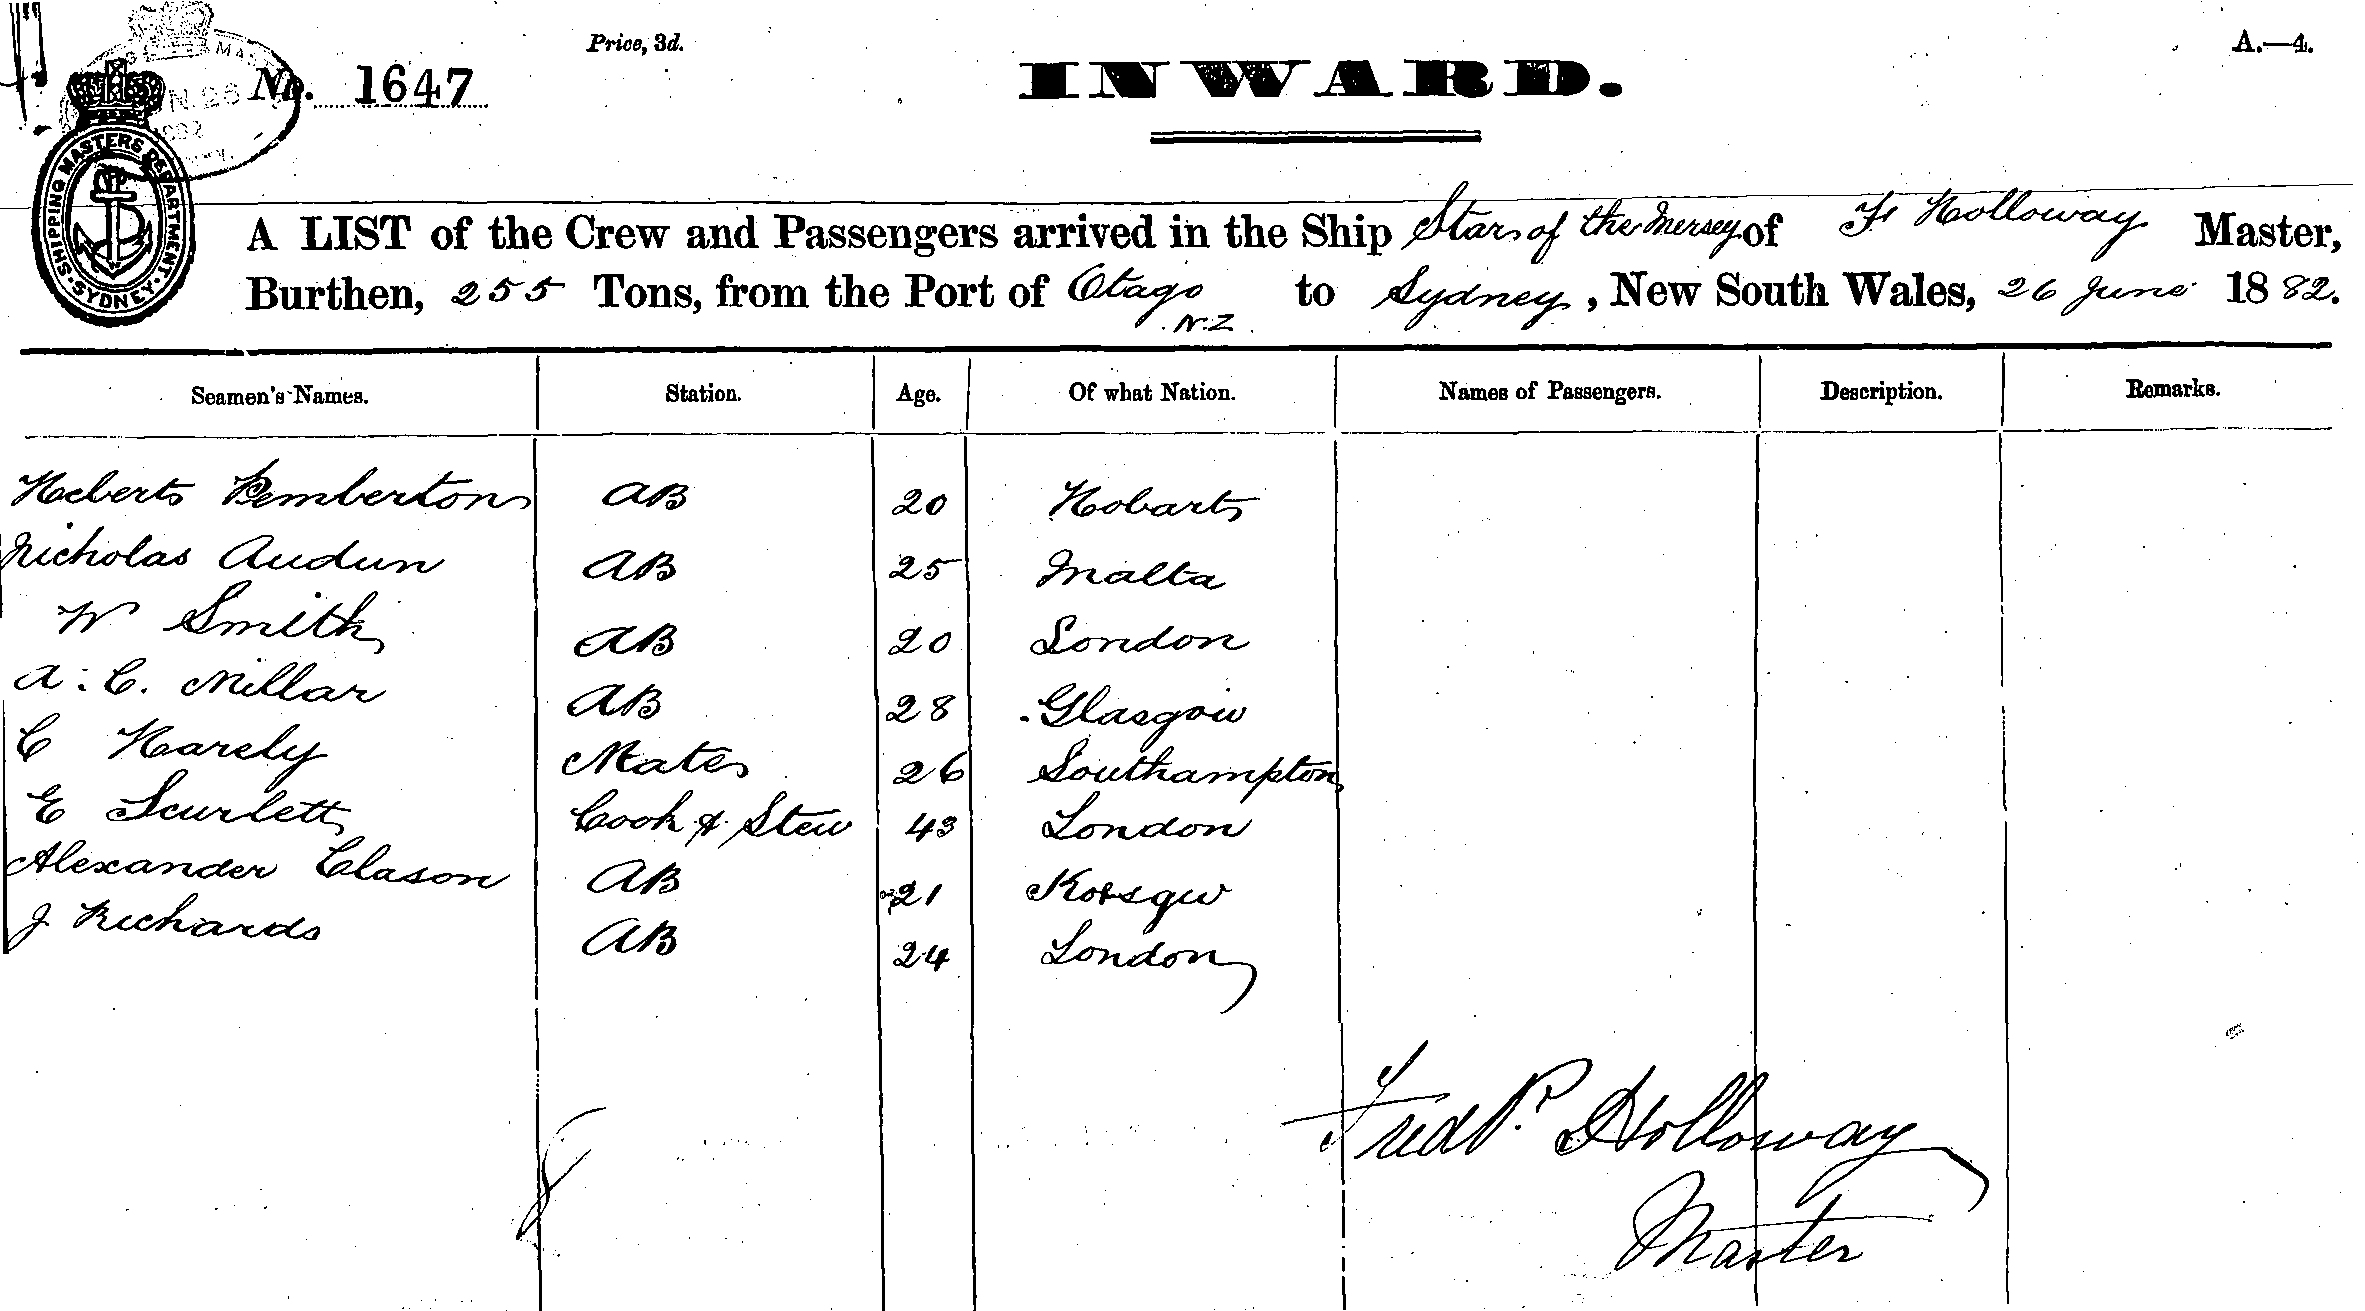 Price, 3d.
A.—4.
No. 1647
INWARD.
SHIPPING MASTERS DEPARTMENT
SYDNEY
A LIST of the Crew and Passengers arrived in the Ship Star of the Mersey of F Holloway Master,
Burthen, 255 Tons, from the Port of Otago N.Z to Sydney, New South Wales, 26 June 1882.
Seamen's Names. Station. Age. Of what Nation. Names of Passengers. Description. Remarks.
Hebert Pemberton AB 20 Hobart
Nicholas Audun AB 25 Malta
W Smith AB 20 London
A. C. Millar AB 28 Glasgow
C Harely Mate 26 Southampton
E Scurlett Cook & Stew 43 London
Alexander Clason AB 21
J Richards AB 24 London
8
Fredk. Holloway
Master